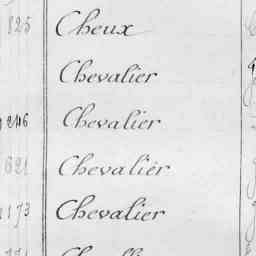 825 Cheux
Chevalier
1246 Chevalier
621 Chevalier
1173 Chevalier